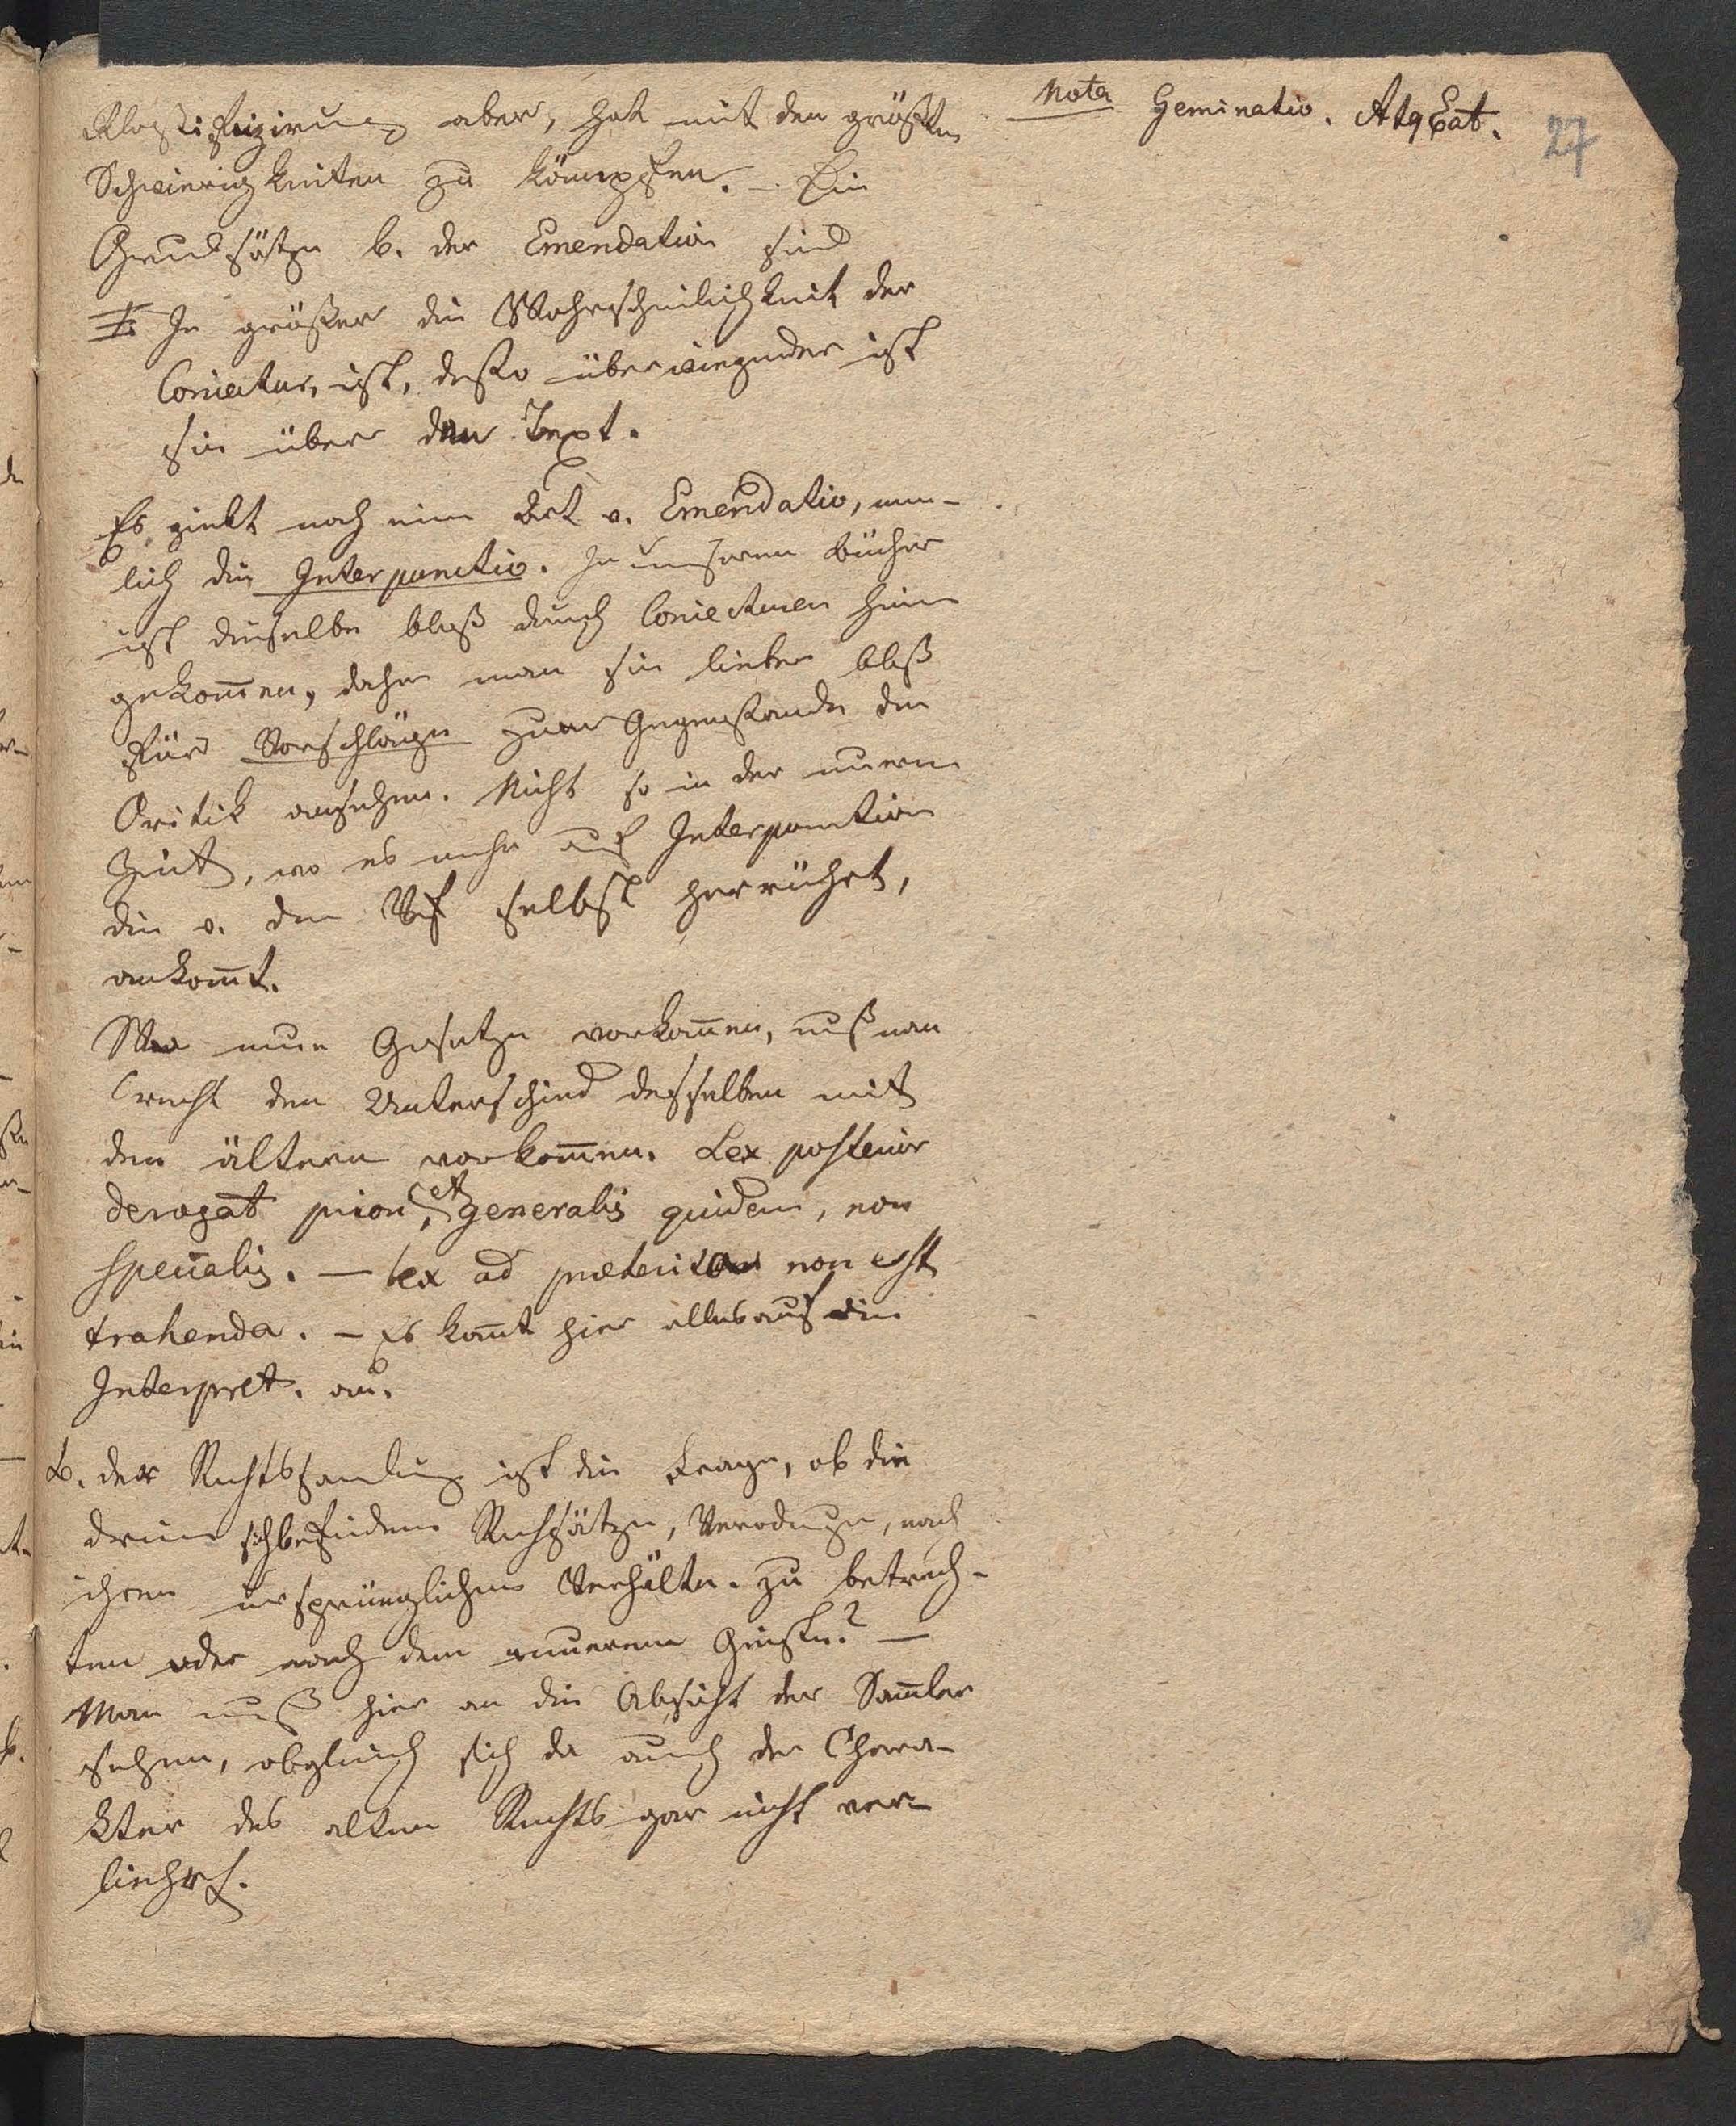 Klassifizirung aber, hat mit den größten
Schwierigkeiten zu kämpfen. – Die
Grundsätze b. der Emendation sind
I: Je größer die Wahrscheinlichkeit der
Coniectur, ist, desto überwiegender ist
sie über den Text.
Es giebt noch eine Art v. Emendatio, nem-
lich die Interpunctio. In unseren Bücher
ist dieselbe bloß durch Coniecturen hine
gekom̄en, daher man sie lieber bloß
für Vorschläge zum Gegenstande der
Critik ansehen. Nicht so in der neuern
Zeit, wo es mehr auf Interpunction
die v. dem Vf selbst herrührt,
ankom̄t.
Wo neue Gesetze vorkom̄en, muß man
recht den Unterschied desselben mit
den ältern vorkom̄en. Lex posterior
derogat priori, et generalis quidem, non
specialis. – Lex ad praeterita non est
trahenda. – Es kom̄t hier alles auf die
Interpret. an.
b. der Rechtssamlung ist die Frage, ob die
drinn sich befindene Rechsätze, Verordnungen, nach
ihren ursprünglichen Verhältn. zu betrach-
ten oder nach dem neueren Geiste? –
Man muß hier an die Absicht der Sam̄ler
sehen, obgleich sich da auch der Chara-
kter des alten Rechts gar nicht ver-
Nota Geminatio.
27